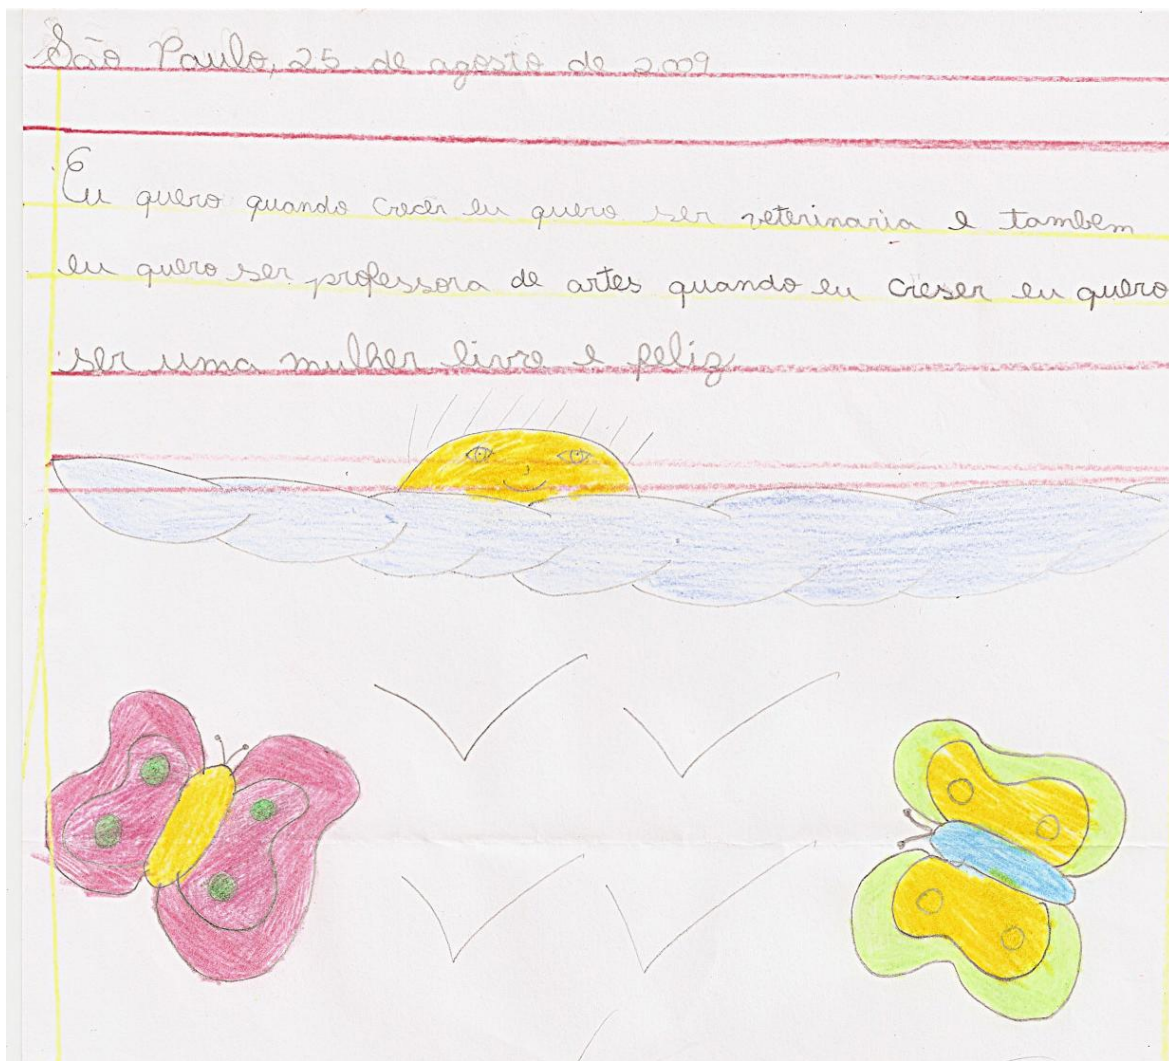 São Paulo, 25 de agosto de 2009
Eu quero quando crecer eu quero ser veterinaria e tambem
eu quero ser professora de artes quando eu creser eu quero
ser uma mulher livre e feliz